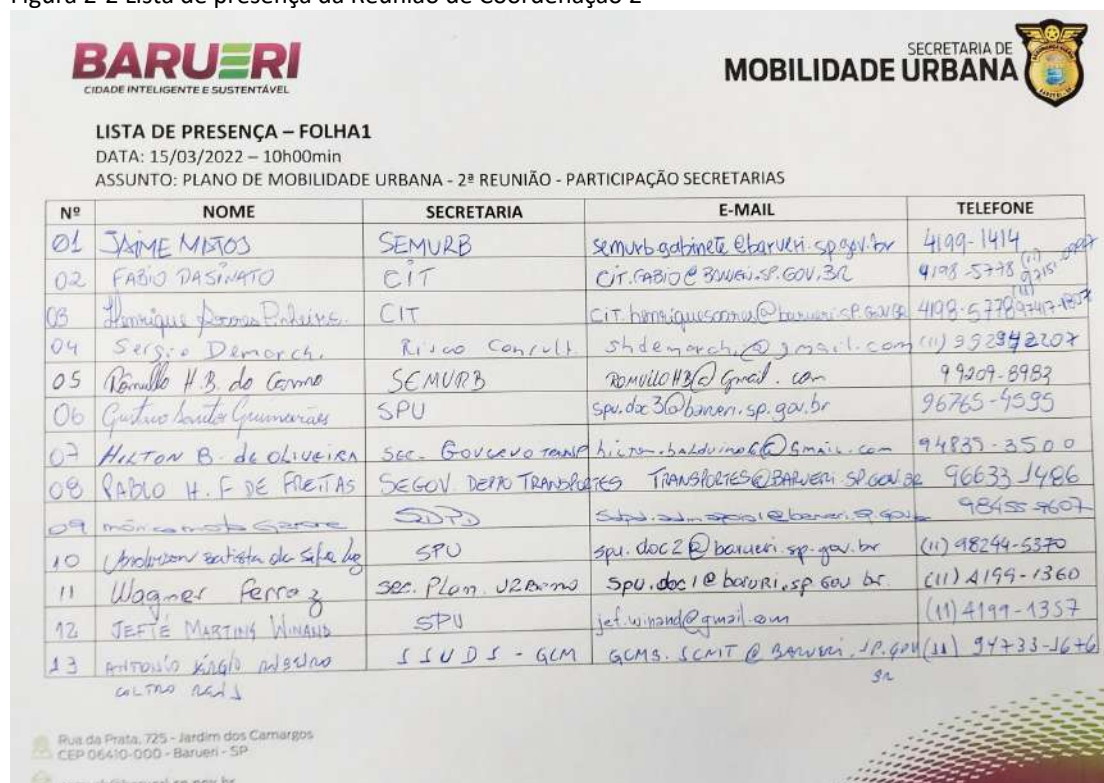 Figura 2-2 Lista de presença da Reunião de Coordenação 2
BARUERI
CIDADE INTELIGENTE E SUSTENTÁVEL
SECRETARIA DE
MOBILIDADE URBANA
LISTA DE PRESENÇA – FOLHA1
DATA: 15/03/2022 – 10h00min
ASSUNTO: PLANO DE MOBILIDADE URBANA - 2ª REUNIÃO - PARTICIPAÇÃO SECRETARIAS
Nº NOME SECRETARIA E-MAIL TELEFONE
01 JAIME MATOS SEMURB semurb.gabinete@barueri.sp.gov.br 4199-1414
02 FABIO CIT CIT.FABIO@BARUERI.SP.GOV.BR 4198-5778 (11)
03 Henrique Pinheiro CIT 4198-5778
04 Sergio Demarchi Risco Consult. shdemarchi@gmail.com (11) 992942207
05 Rômullo H.B. do Carmo SEMURB ROMULLOHB@Gmail.com 99209-8982
06 Gustavo Santos Guimarães SPU spu.doc3@barueri.sp.gov.br 96765-4595
07 HILTON B. de OLIVEIRA SEC. GOVERVO TRANSP 94835-3500
08 PABLO H. F DE FREITAS SEGOV. DEPTO TRANSPORTES TRANSPORTES@BARUERI.SP.GOV.BR 96633 1486
09 SDPD 98455-9607
10 Batista da SPU spu.doc2@barueri.sp.gov.br (11) 98244-5370
11 Wagner Ferraz Sec. Plan. URBano Spu.doc1@baruRi.sp Gov br. (11) 4199-1360
12 JEFTÉ MARTINS WINAND SPU jef.winand@gmail.com (11) 4199-1357
13 ANTONIO SÉRGIO SSUDS - GCM (11) 94733-1676
Rua da Prata, 725 - Jardim dos Camargos
CEP 06410-000 - Barueri - SP